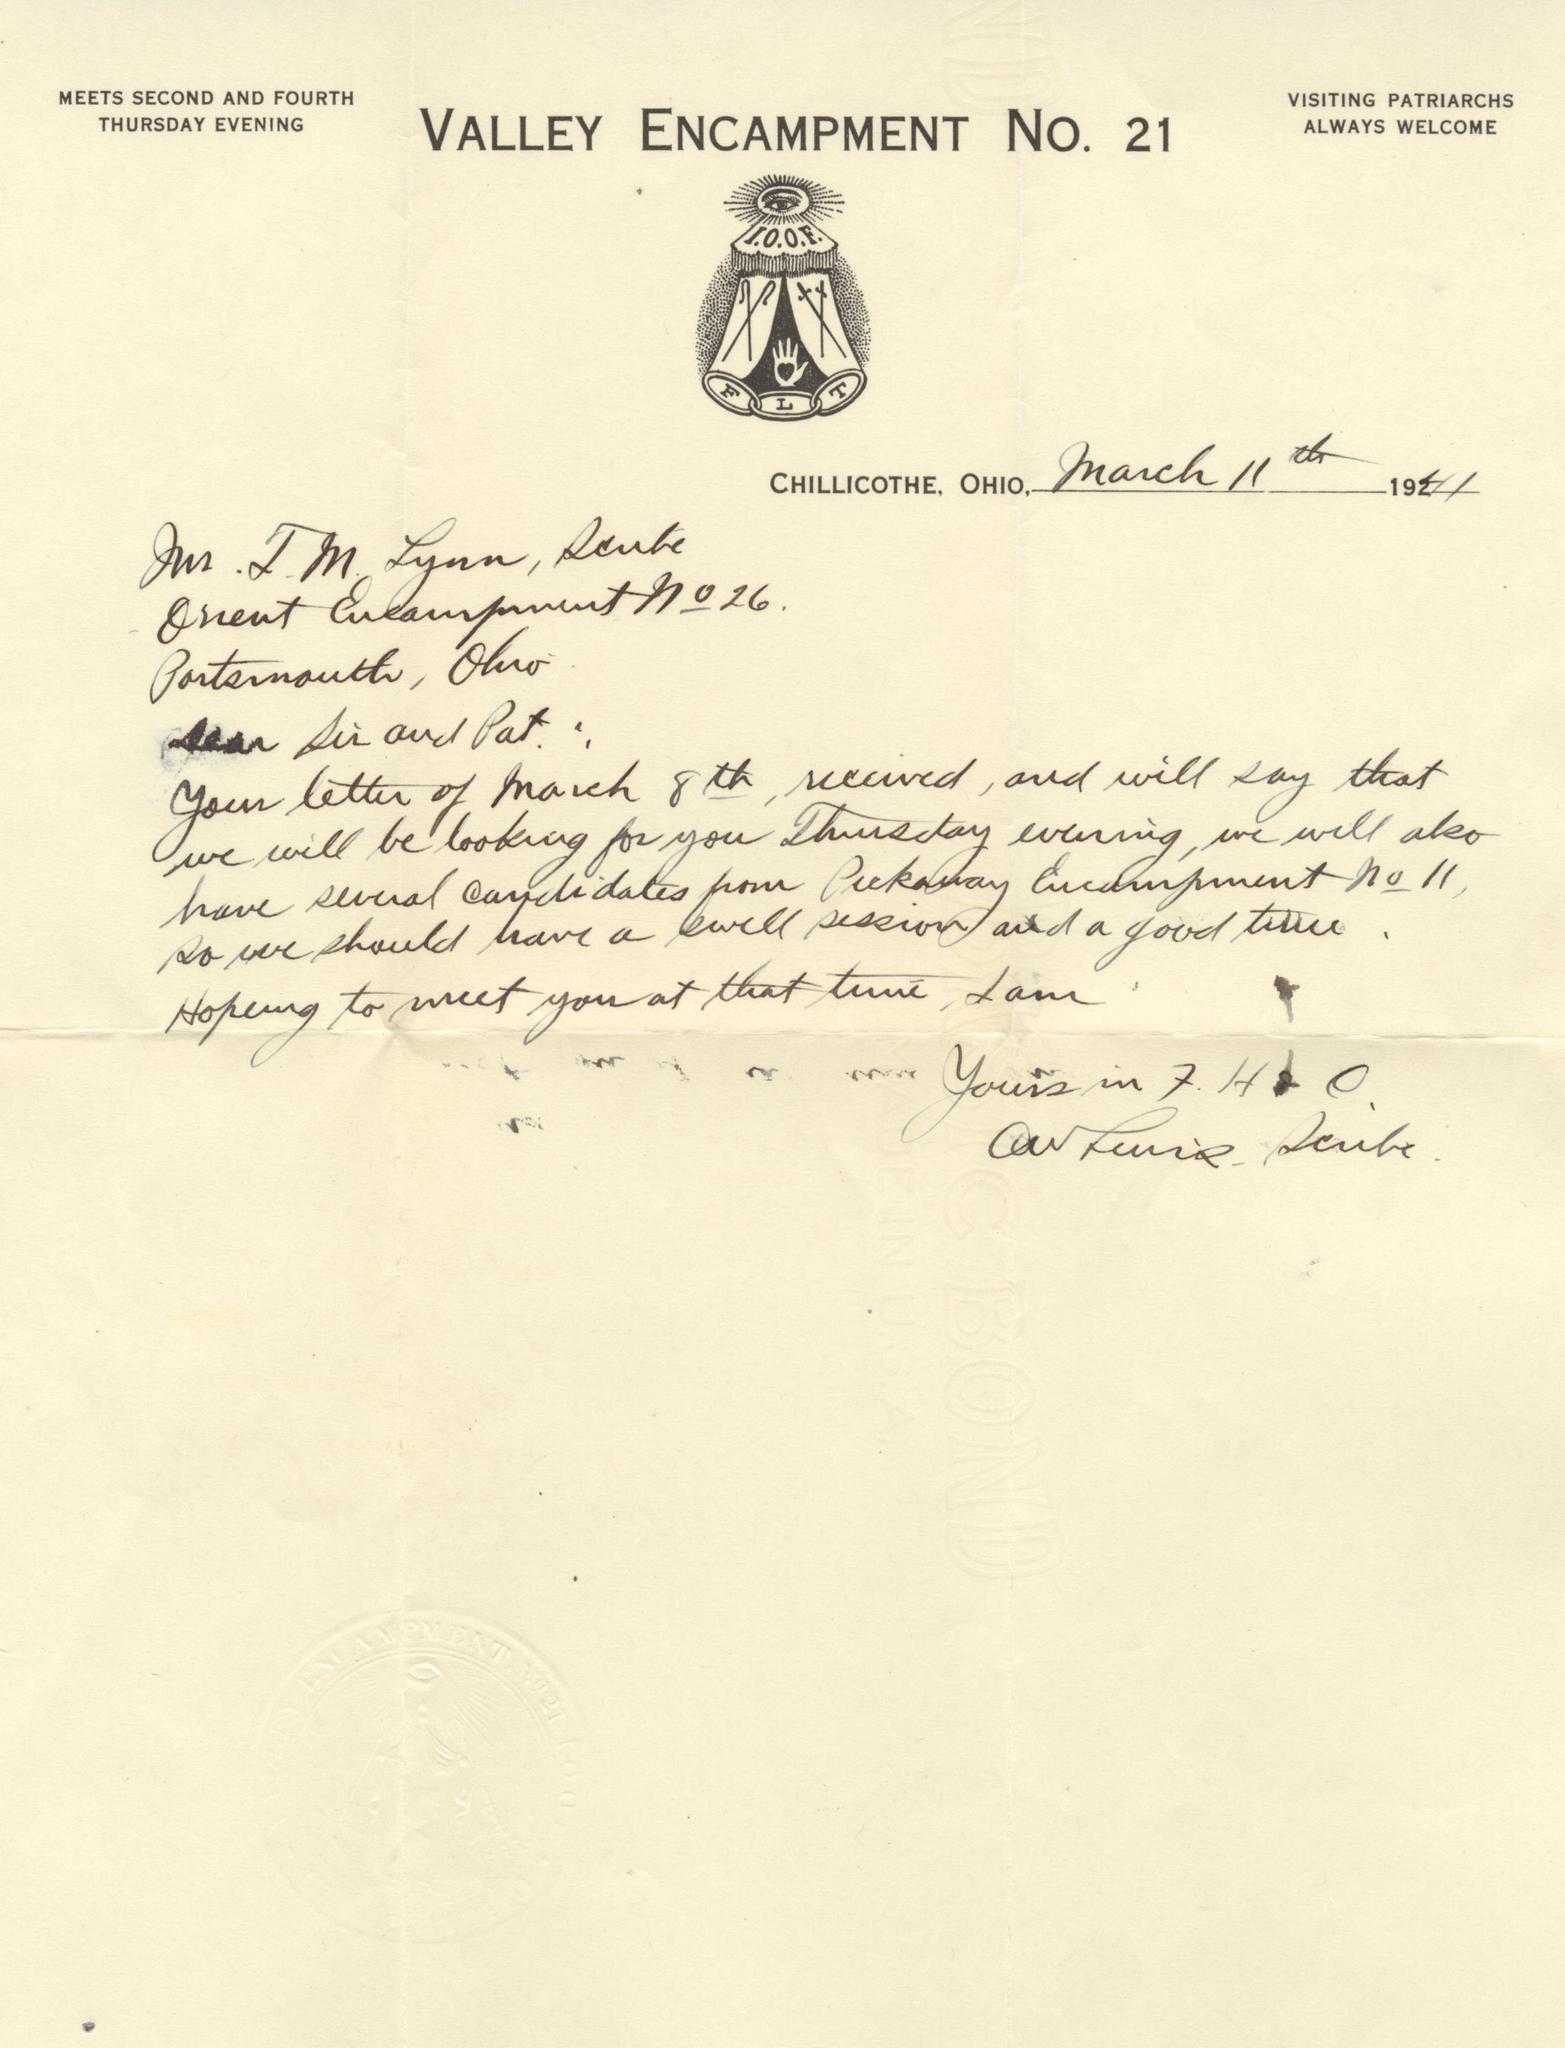 MEETS SECOND AND FOURTH
THURSDAY EVENING
VALLEY ENCAMPMENT NO. 21
VISITING PATRIARCHS
ALWAYS WELCOME
I.O.O.F.
F L T
CHILLICOTHE, OHIO, March 11th 1941
Mr. T. M. Lynn, Scribe
Orient Encampment No 26.
Portsmouth, Ohio
Dear Sir and Pat. :
Your letter of March 8th, received, and will say that
we will be looking for you Thursday evening, we will also
have several candidates from Pickaway Encampment No 11,
so we should have a swell session and a good time.
Hopeing to meet you at that time, I am
Yours in F. H & C.
CW Lewis - Scribe.
BOND
IN USA
ENCAMPMENT No 21 I.O.O.